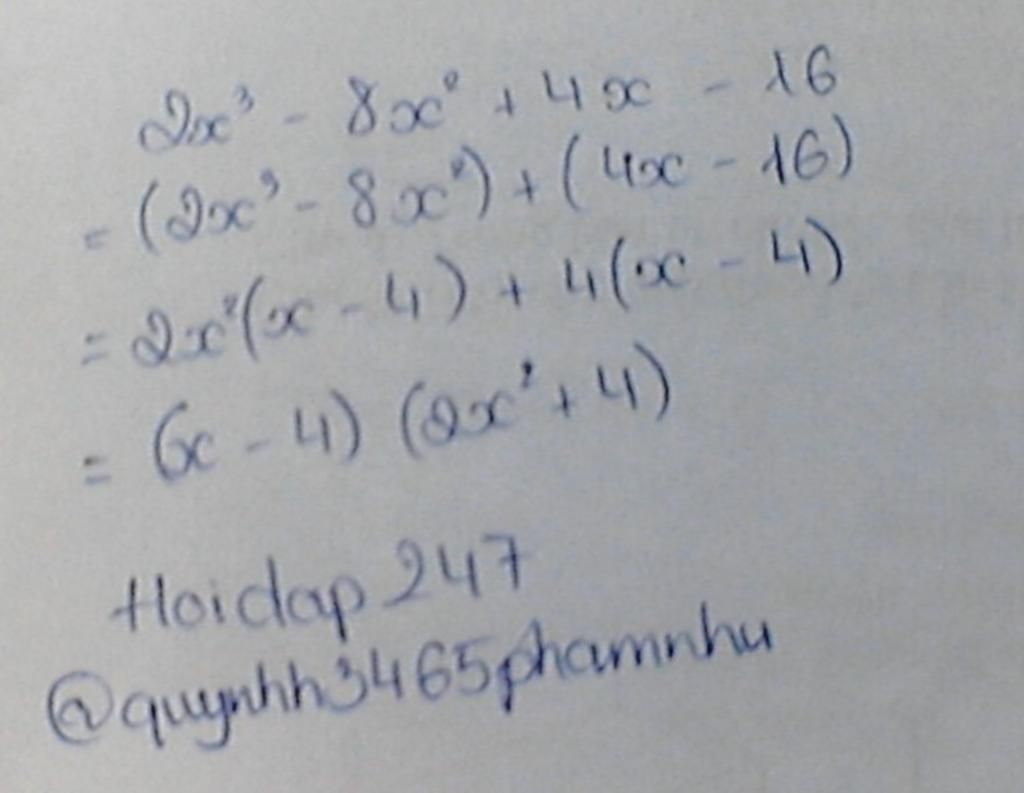 2x³ - 8x² + 4x - 16
= (2x³ - 8x²) + (4x - 16)
= 2x²(x - 4) + 4(x - 4)
= (x - 4) (2x² + 4)
Hoidap 247
@quynhh3465phamnhu